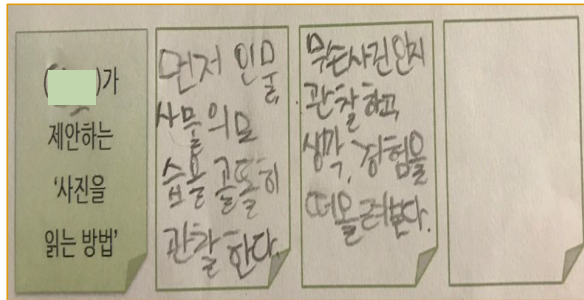 ( )가
제안하는
'사진을
읽는 방법'
먼저 인물,
사물의 모
습을 골똘히
관찰한다.
무슨사진인지
관찰하고,
생각, 경험을
떠올려본다.